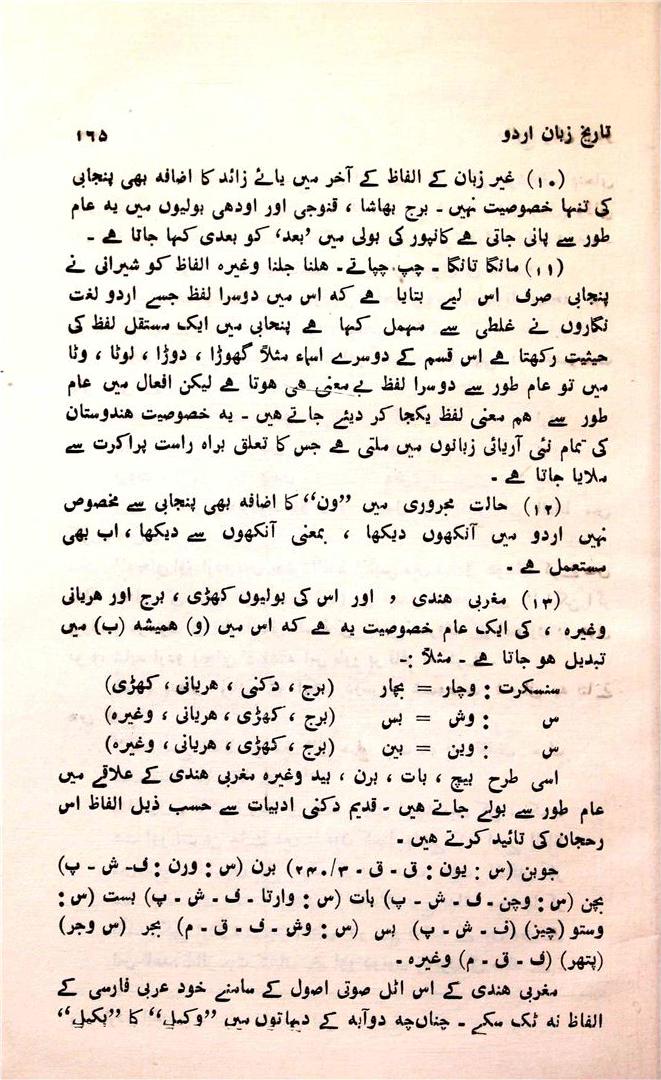 تاریخ زبان اردو ۱۶۵
(۱۰) غیر زبان کے الفاظ کے آخر میں یائے زائد کا اضافہ بھی پنجابی
کی تنہا خصوصیت نہیں ۔ برج بھاشا ، قنوجی اور اودھی بولیوں میں یہ عام
طور سے پائی جاتی ہے کانپور کی بولی میں ’بعد‘ کو بعدی کہا جاتا ہے ۔
(۱۱) مانگا تانگا ۔ چپ چپاتے ۔ ھلنا جلنا وغیرہ الفاظ کو شیرانی نے
پنجابی صرف اس لیے بتایا ہے کہ اس میں دوسرا لفظ جسے اردو لغت
نگاروں نے غلطی سے مہمل کہا ہے پنجابی میں ایک مستقل لفظ کی
حیثیت رکھتا ہے اس قسم کے دوسرے اسماء مثلاً گھوڑا ، دوڑا ، لوٹا ، وٹا
میں تو عام طور سے دوسرا لفظ بے معنی ھی ھوتا ہے لیکن افعال میں عام
طور سے ھم معنی لفظ یکجا کر دیئے جاتے ھیں ۔ یہ خصوصیت ھندوستان
کی تمام نئی آریائی زبانوں میں ملتی ہے جس کا تعلق براہ راست پراکرت سے
ملایا جاتا ہے ۔
(۱۲) حالت مجروری میں ”ون“ کا اضافہ بھی پنجابی سے مخصوص
نہیں اردو میں آنکھوں دیکھا ، بمعنی آنکھوں سے دیکھا ، اب بھی
مستعمل ہے ۔
(۱۳) مغربی ھندی ، اور اس کی بولیوں کھڑی ، برج اور ھریانی
وغیرہ ، کی ایک عام خصوصیت یہ ہے کہ اس میں (و) ھمیشہ (ب) میں
تبدیل ھو جاتا ہے ۔ مثلاً :-
سنسکرت : وچار = بچار (برج ، دکنی ، ھریانی ، کھڑی)
س : وش = بس (برج ، کھڑی ، ھریانی ، وغیرہ)
س : وین = بین (برج ، کھڑی ، ھریانی ، وغیرہ)
اسی طرح بیچ ، بات ، برن ، بید وغیرہ مغربی ھندی کے علاقے میں
عام طور سے بولے جاتے ھیں ۔ قدیم دکنی ادبیات سے حسب ذیل الفاظ اس
رحجان کی تائید کرتے ھیں ۔
جوبن (س : یون : ق ۔ ق ۔ ۲۴۰/۳) برن (س : ورن : ف ۔ ش ۔ پ)
بچن (س : وچن ۔ ف ۔ ش ۔ پ) بات (س : وارتا ۔ ف ۔ ش ۔ پ) بست (س :
وستو (چیز) (ف ۔ ش ۔ پ) بس (س : وش ۔ ف ۔ ق ۔ م) بجر (س وجر)
(پتھر) (ف ۔ ق ۔ م) وغیرہ ۔
مغربی ھندی کے اس اٹل صوتی اصول کے سامنے خود عربی فارسی کے
الفاظ نہ ٹک سکے ۔ چناں چہ دوآبہ کے دیہاتوں میں ”وکیل“ کا ”بکیل“